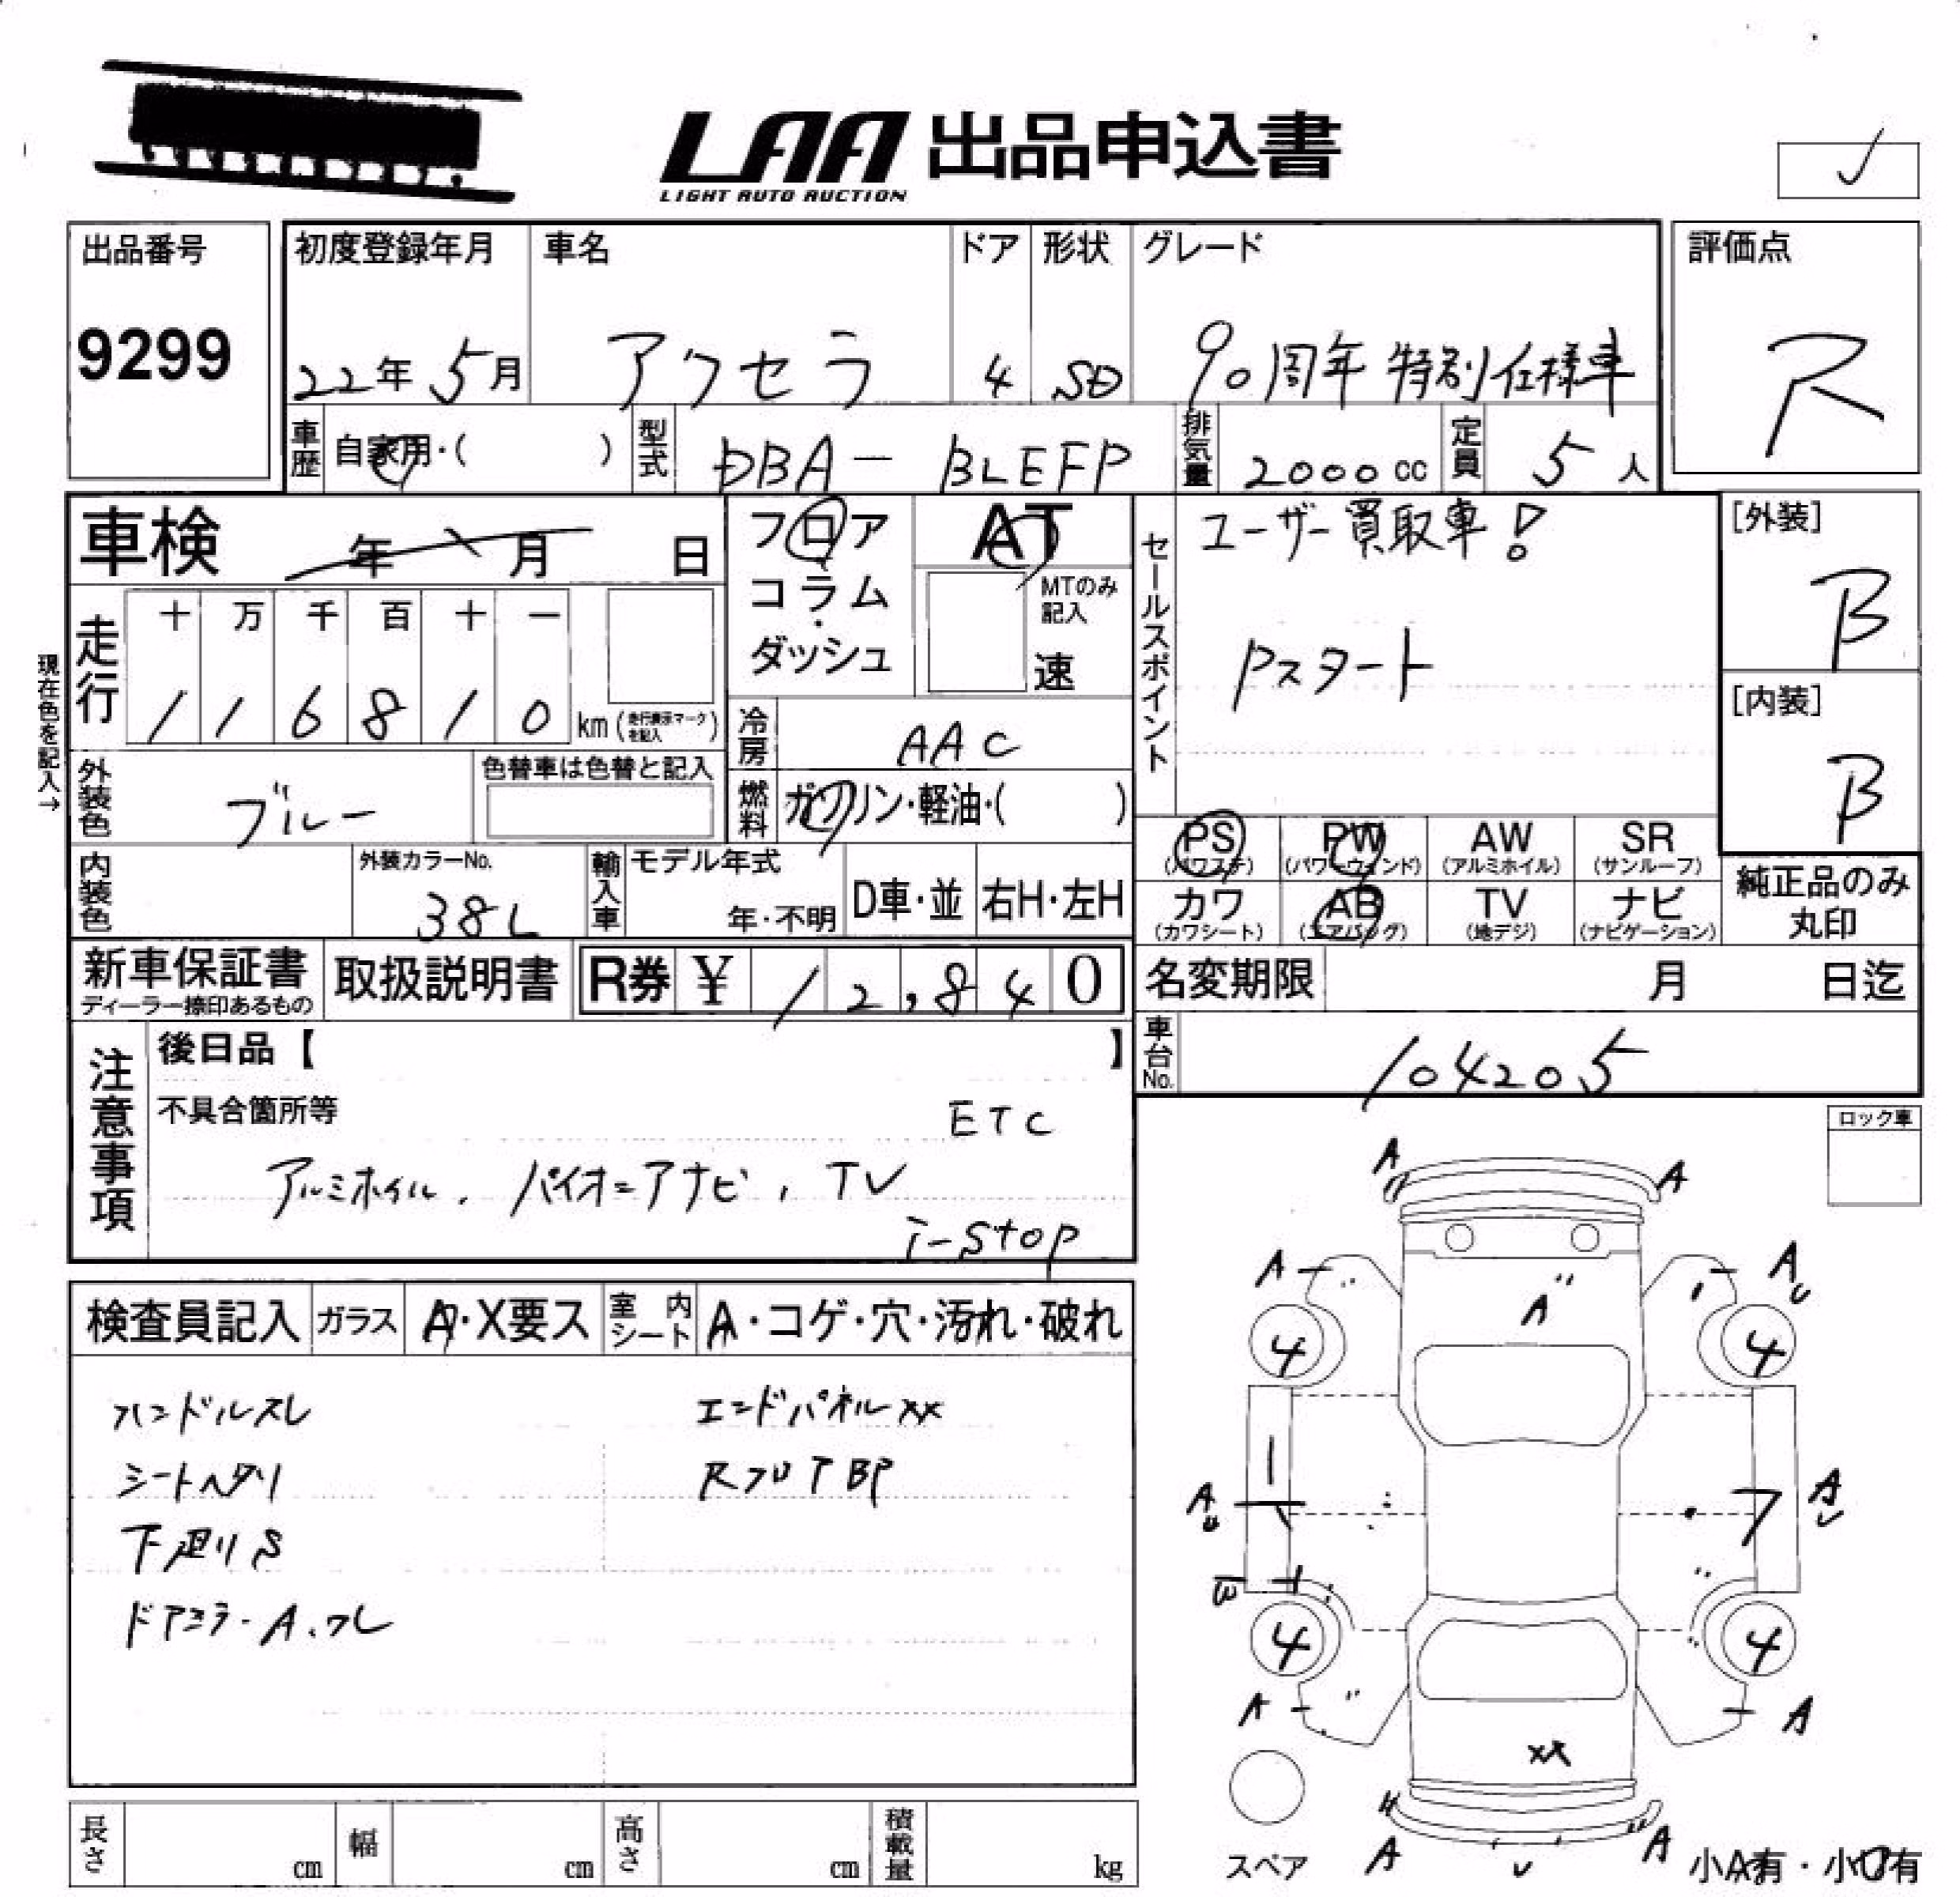 LAA 出品申込書
LIGHT AUTO AUCTION
出品番号
9299
初度登録年月
22年5月
車名
アクセラ
ドア
4
形状
SD
グレード
90周年特別仕様車
評価点
R
車歴
自家用・( )
型式
DBA-BLEFP
排気量
2000cc
定員
5人
車検 年 月 日
フロア
コラム
・
ダッシュ
AT
MTのみ
記入
速
セールスポイント
ユーザー買取車!
Pスタート
[外装]
B
[内装]
B
現在色を記入→
走行
十 万 千 百 十 一
1 1 6 8 1 0 km (走行表示マークを記入)
冷房
AAC
外装色
ブルー
色替車は色替と記入
燃料
ガソリン・軽油・( )
PS
(パワステ)
PW
(パワーウィンド)
AW
(アルミホイル)
SR
(サンルーフ)
カワ
(カワシート)
AB
(エアバッグ)
TV
(地デジ)
ナビ
(ナビゲーション)
純正品のみ
丸印
内装色
外装カラーNo.
38L
輸入車
モデル年式
年・不明
D車・並
右H・左H
新車保証書
ディーラー捺印あるもの
取扱説明書
R券 ¥ 12,840
名変期限 月 日迄
車台No.
104205
注意事項
後日品【 】
不具合箇所等
ETC
アルミホイル、パイオニアナビ、TV
i-stop
ロック車
検査員記入
ガラス
A・X要ス
室内シート
A・コゲ・穴・汚れ・破れ
ハンドルスレ
エンドパネルXX
シートヘタリ
RフロアBP
下廻りS
ドアミラーA、ワレ
A A
A A U
A
4 4
A U A U
W
4 4
A A
XX
A U A
スペア
小A有・小U有
長さ cm
幅 cm
高さ cm
積載量 kg